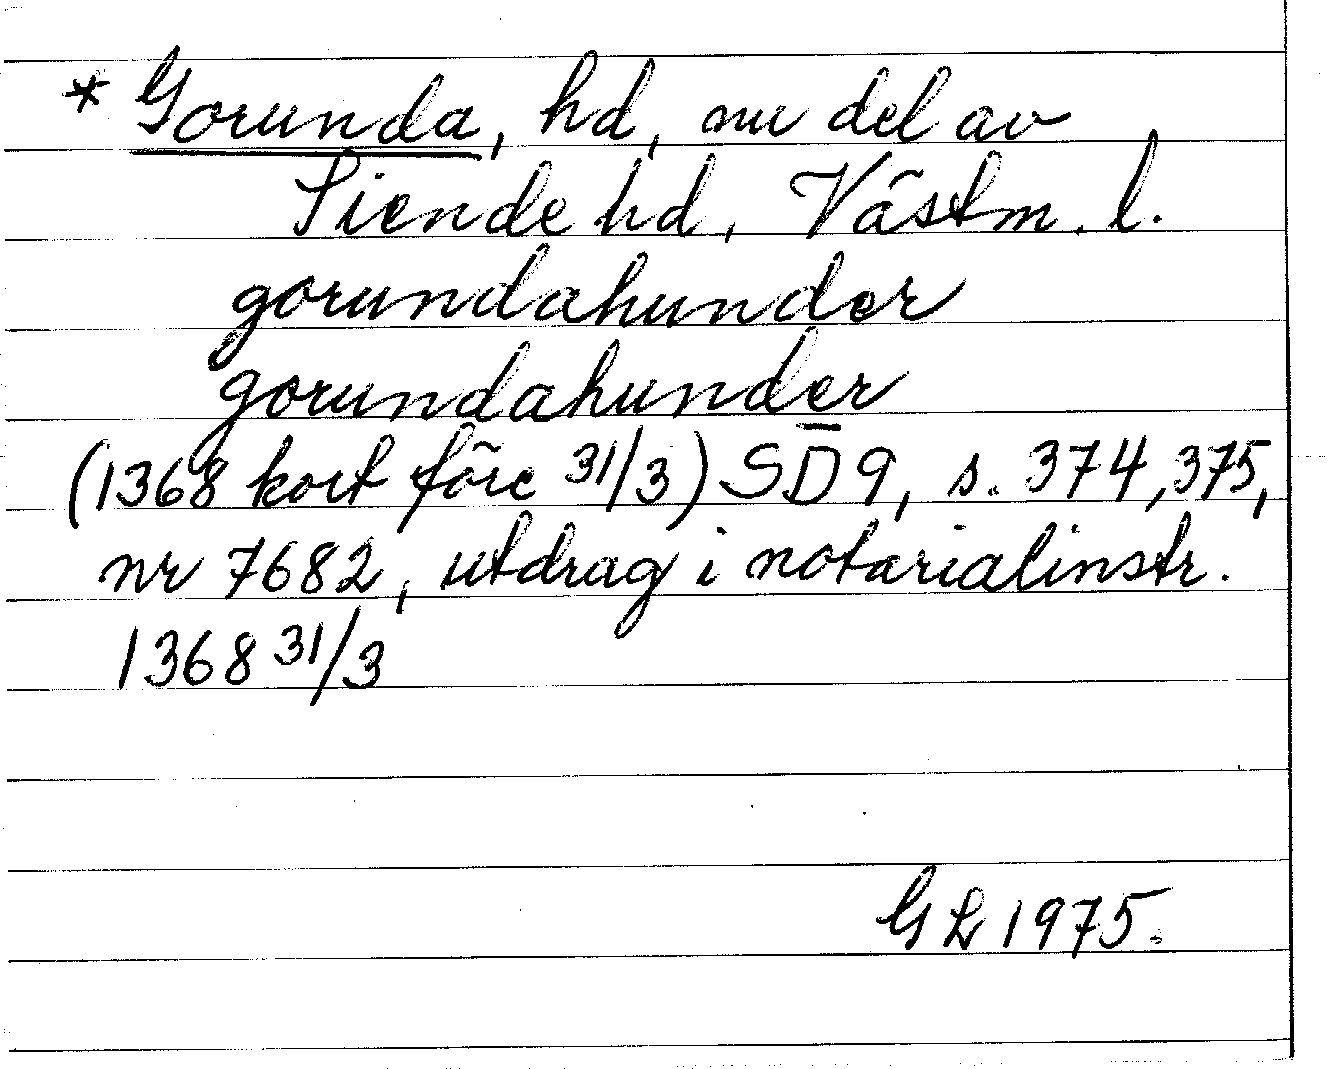 * Gorunda, hd, nu del av
Siende hd, Västm. l.
gorundahunder
gorundahunder
(1368 kort före 31/3) SD 9, s. 374, 375,
nr 7682, utdrag i notarialinstr.
1368 31/3
GL 1975.